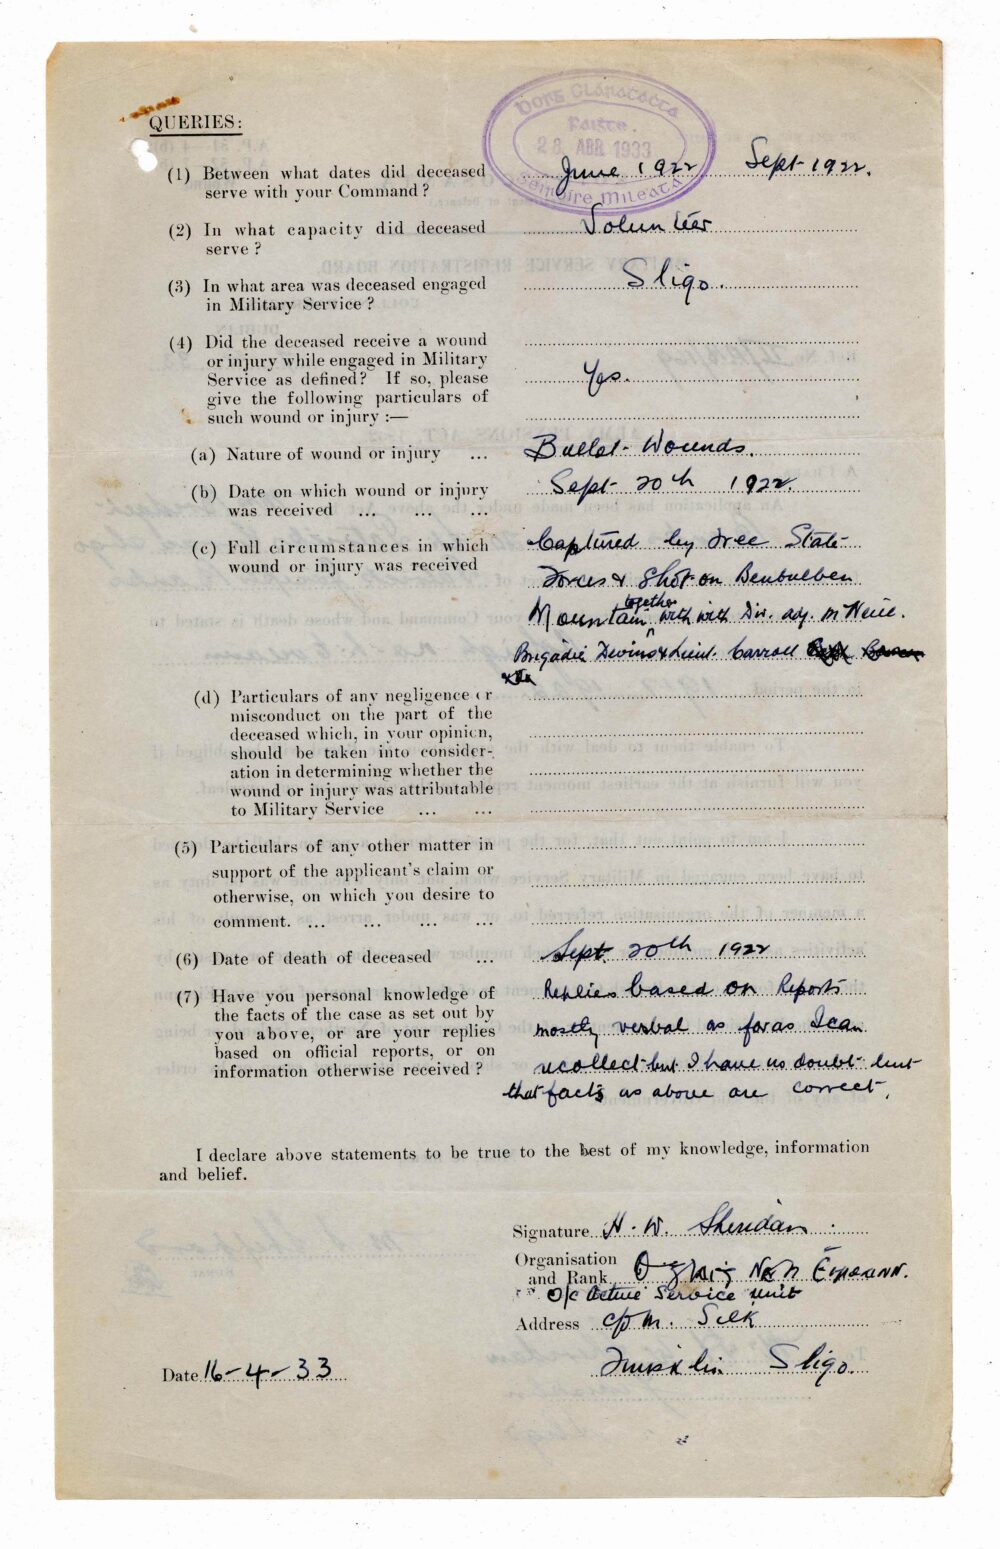 QUERIES:
Bord Clárathachta
Faisce.
28 ABR 1933
Seirbhíse Míleata
(1) Between what dates did deceased serve with your Command?
June 1922 Sept 1922.
(2) In what capacity did deceased serve?
Volunteer
(3) In what area was deceased engaged in Military Service?
Sligo.
(4) Did the deceased receive a wound
or injury while engaged in Military
Service as defined? If so, please
give the following particulars of
such wound or injury :—
Yes.
(a) Nature of wound or injury ...
Bullet Wounds.
(b) Date on which wound or injury
was received ... ... ...
Sept 20th 1922.
(c) Full circumstances in which
wound or injury was received
Captured by Free State
Forces & Shot on Benbulben
Mountain together with with Div. adj. McNeill.
Brigadie Devins & Lieut. Carroll
(d) Particulars of any negligence or
misconduct on the part of the
deceased which, in your opinion,
should be taken into consider-
ation in determining whether the
wound or injury was attributable
to Military Service ... ...
(5) Particulars of any other matter in
support of the applicant's claim or
otherwise, on which you desire to
comment. ... ... ... ...
(6) Date of death of deceased ...
Sept. 20th 1922
(7) Have you personal knowledge of
the facts of the case as set out by
you above, or are your replies
based on official reports, or on
information otherwise received?
Replies based on Reports
mostly verbal as far as I can
recollect but I have no doubt but
that facts as above are correct.
I declare above statements to be true to the best of my knowledge, information
and belief.
Signature H. W. Sheridan.
Organisation
and Rank Óglaiġ Na h Éireann.
O/c Active Service Unit
Address c/o M. Silk
Sligo.
Date 16-4-33